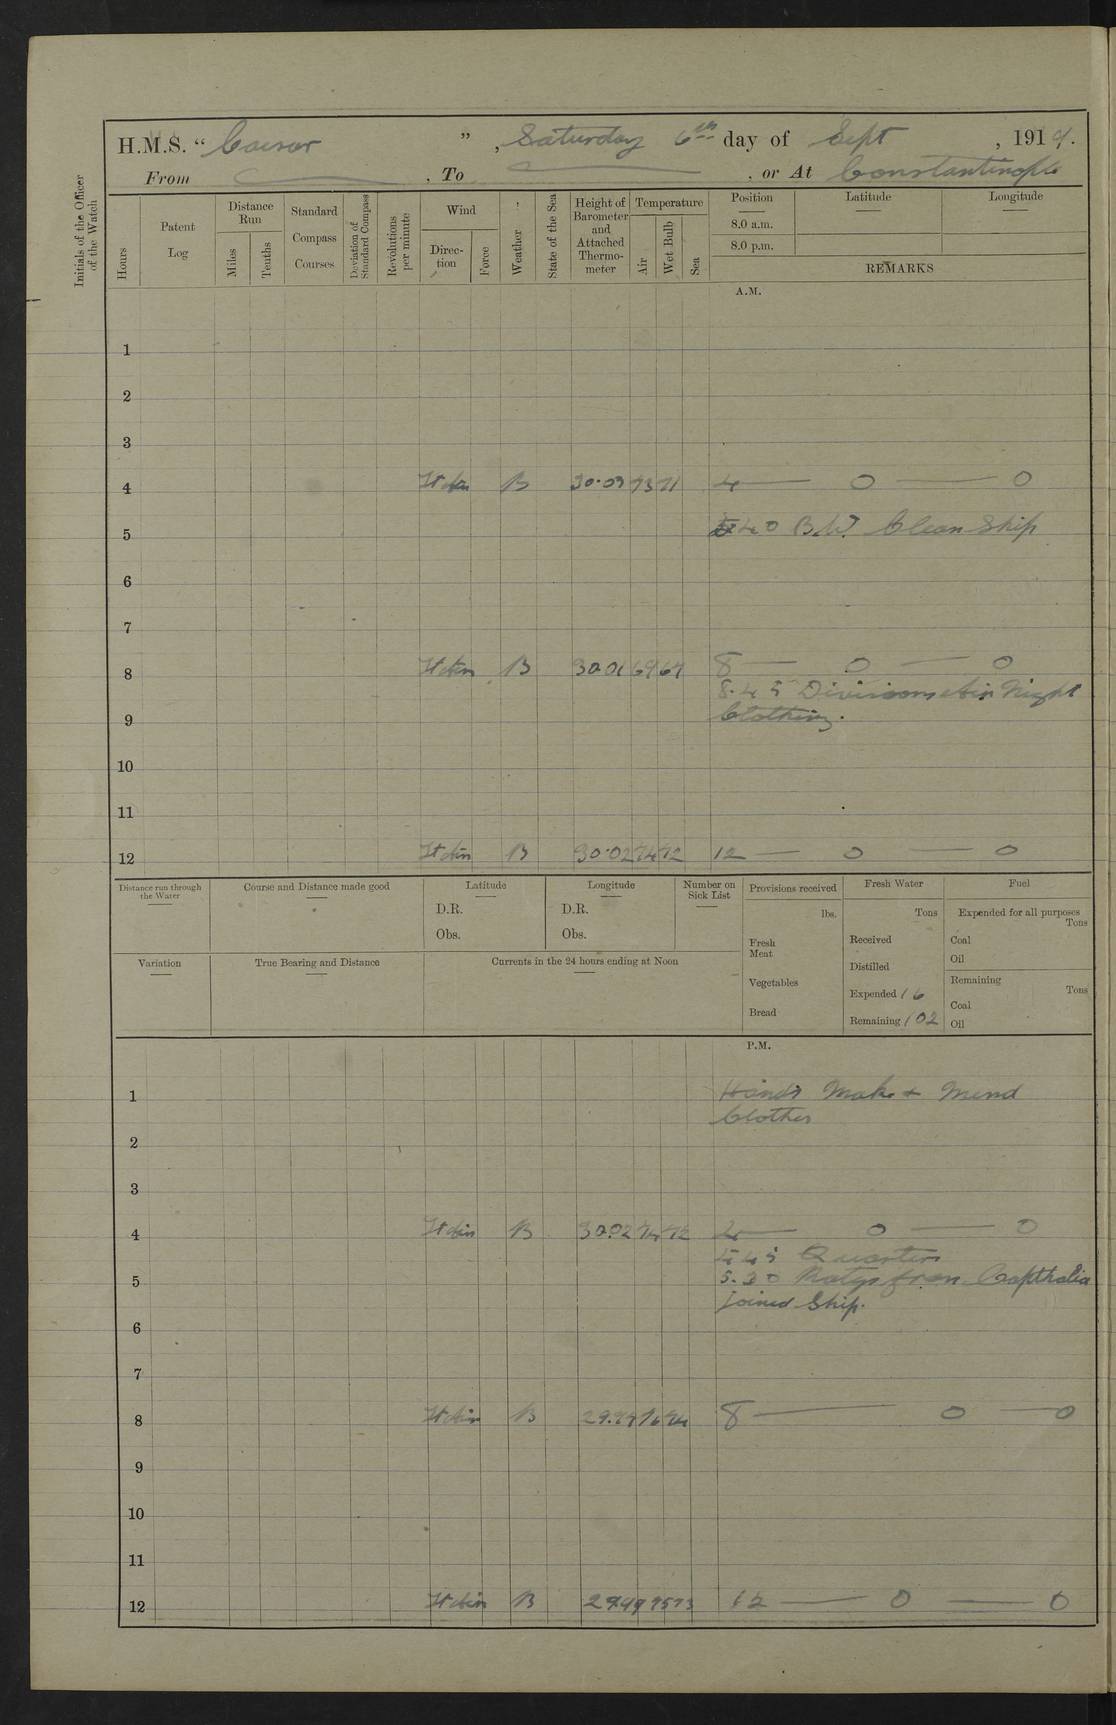 H.M.S. “ Caesar ” , Saturday 6th day of Sept , 1919.
From , To , or At Constantinople
Initials of the Officer
of the Watch
Hours
Patent
Log
Distance
Run
Miles
Tenths
Standard
Compass
Courses
Deviation of
Standard Compass
Revolutions
per minute
Wind
Direc-
tion
Force
Weather
State of the Sea
Height of
Barometer
and
Attached
Thermo-
meter
Temperature
Air
Wet Bulb
Sea
Position Latitude Longitude
8.0 a.m.
8.0 p.m.
REMARKS
A.M.
1
2
3
4 B 30·03 73 71 4 — 0 — 0
5 40 B.W. Clean Ship
6
7
8 B 30.01 69 67 8 — 0 — 0
8.45 Divisions Night
9 Clothing.
10
11
12 B 30·02 74 72 12 — 0 — 0
Distance run through
the Water
Course and Distance made good
Latitude
D.R.
Obs.
Longitude
D.R.
Obs.
Number on
Sick List
Provisions received
lbs.
Fresh
Meat
Vegetables
Bread
Fresh Water
Tons
Received
Distilled
Expended 16
Remaining 102
Fuel
Expended for all purposes
Tons
Coal
Oil
Remaining
Tons
Coal
Oil
Variation
True Bearing and Distance
Currents in the 24 hours ending at Noon
P.M.
1 Hands Make & Mend
Clothes
2
3
4 B 30.02 74 72 4 — 0 — 0
4 45 Quarters
5 5.30 from
joined Ship.
6
7
8 B 8 — 0 — 0
9
10
11
12 B 29.99 75 73 12 — 0 — 0